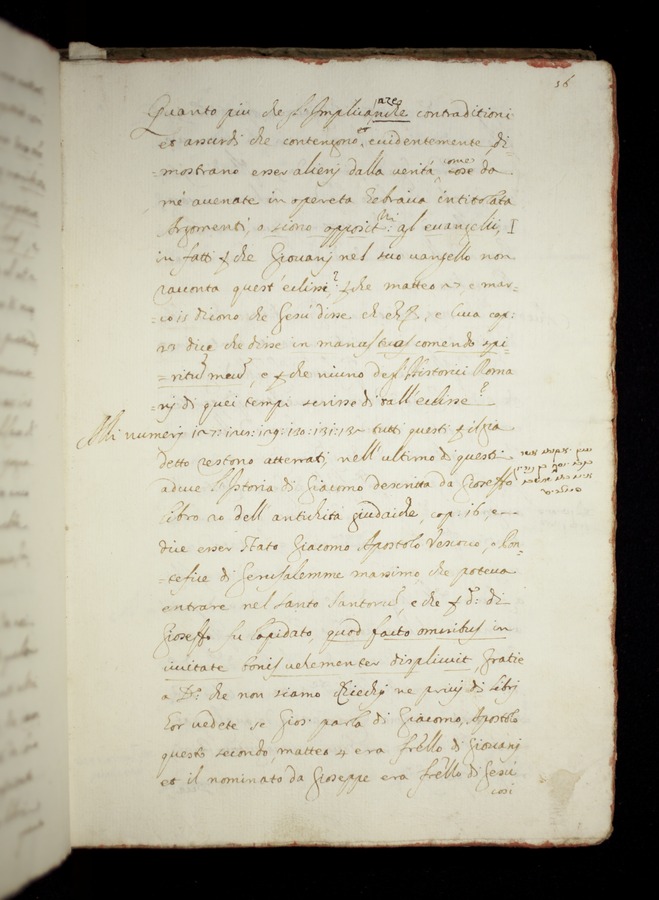 56
Quanto piu che l'Implicanze contraditioni
et assurdi che contengono, et euidentemente di=
=mostrano esser alieni dalla verità, come cose da
mè auenate in opereta Ebraica intitolata
Argomenti, o siano opposit:ni agl'euangelii,
in fatti che Giouani nel suo uangello non
racconta quest'eclisse? che matteo 27 e mar=
=co 15 dicono che Gesù disse, e luca cap:
23 dice che disse in manus tuas comendo spi=
=ritum meum, e che niuno degl'Historici Roma
=nij di quei tempi scrisse di tall'eclisse?
Alli numerij 127: 128: 129: 130: 131: 132 tutti questi
detto restono atterrati nell'ultimo di questi
aduce l'Istoria di Giacomo descritta da Gioseffo
libro 20 dell'antichità giudaiche, cap: 16, e
dice esser stato Giacomo Apostolo Vescouo, o Pon=
=tefice di Gerusalemme massimo che poteua
entrare nel santo santorum, e che di
Gioseffo fu lapidato, quod facto omnibus in
ciuitate bonis uehementer displicuit, Gratie
a D: che non siamo Ciechij ne priuij di libri
Hor uedete se Gios: parla di Giacomo Apostolo
questo secondo matteo 4 era f'rello di Giouani
et il nominato da Gioseppe era f'rello di Gesù
cosi